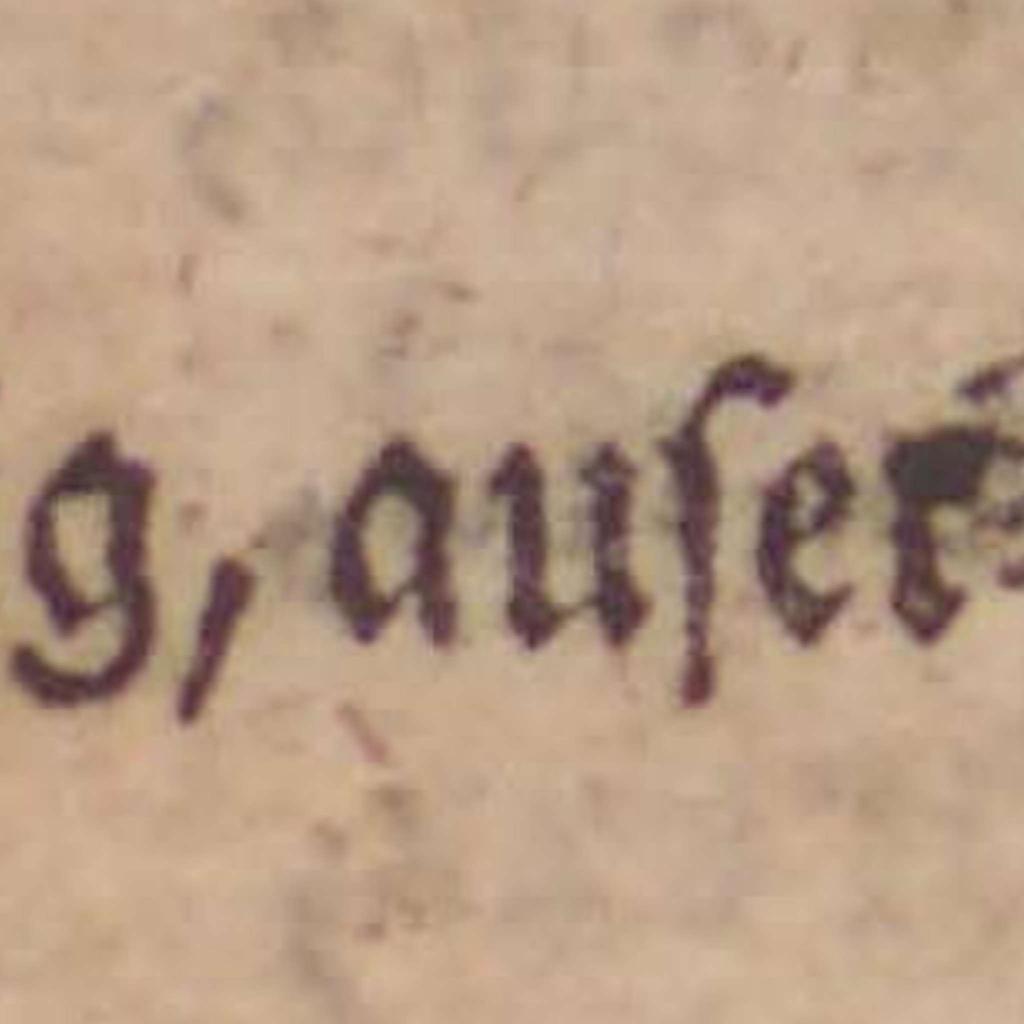 g, auſer